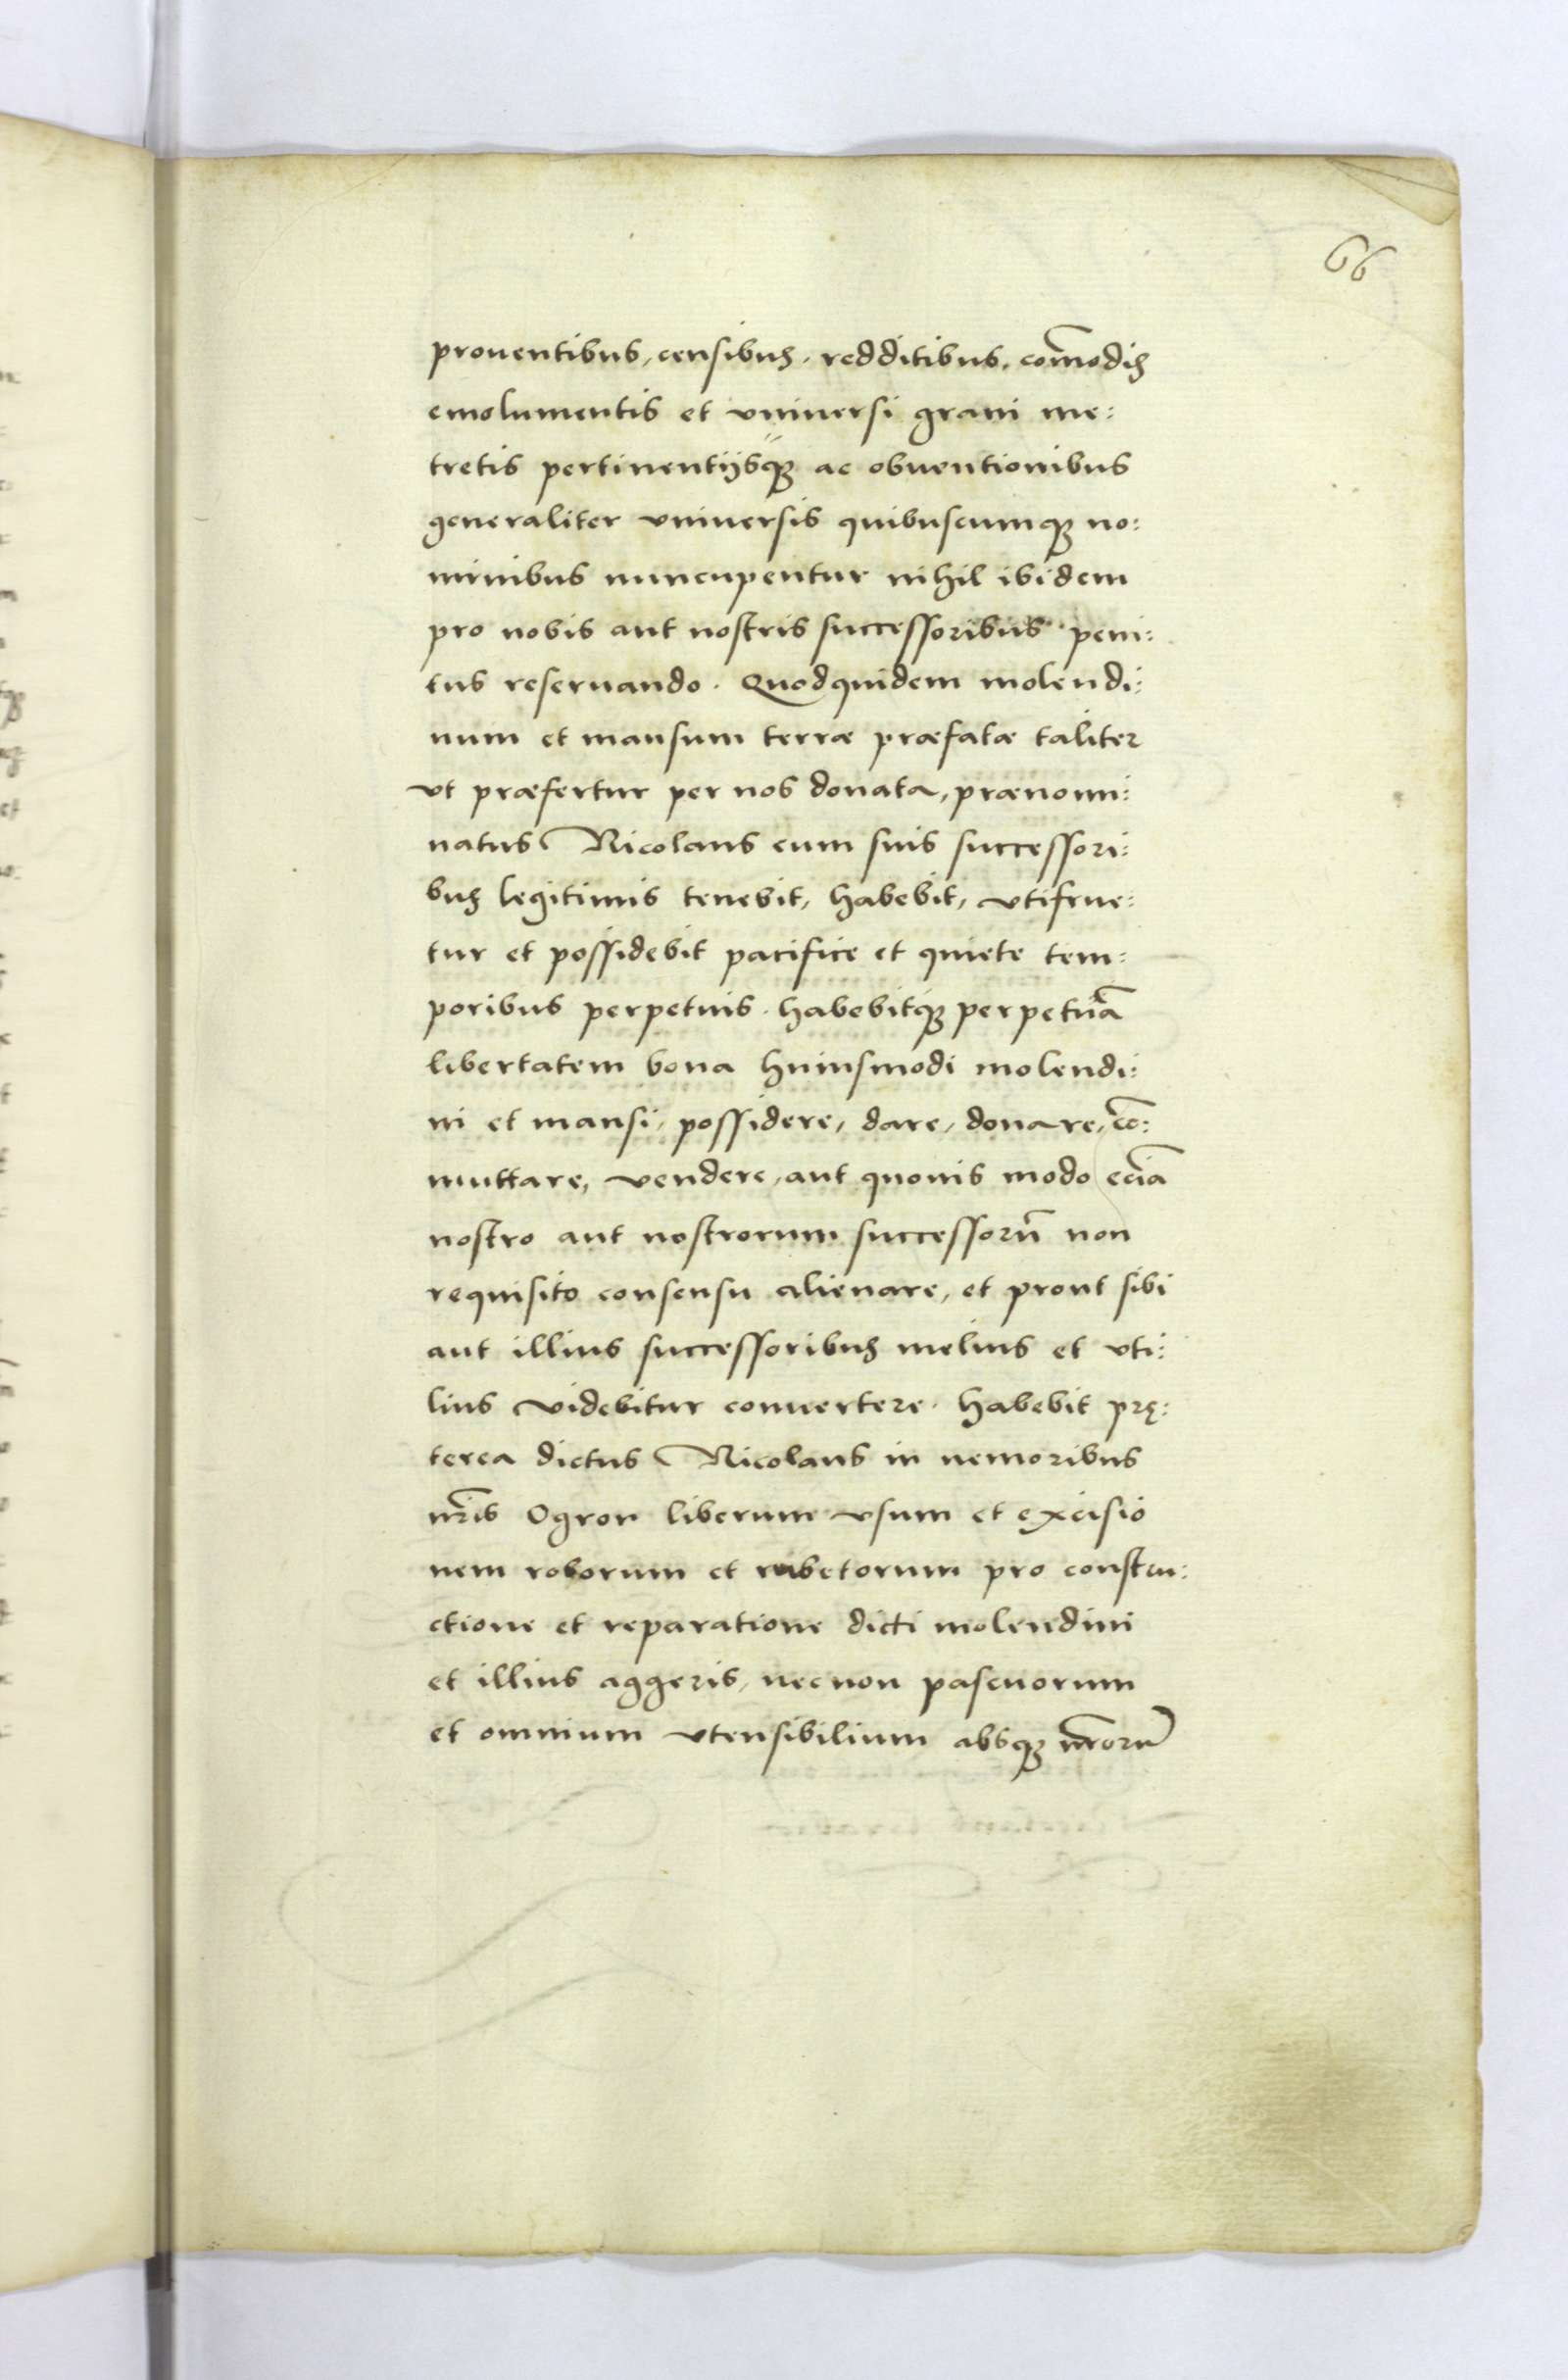 66
prouentibus, censibus, redditibus, com̄odis
emolumentis et vniuersi grani me:
tretis pertinentijsq₃ ac obuentionibus
generaliter vniuersis quibuscumq₃ no:
minibus nuncupentur nihil ibidem
pro nobis aut nostris successoribus peni:
tus reseruando. Quodquidem molendi:
num et mansum terræ præfatæ taliter
vt præfertur per nos donata, prænomi:
natus Nicolaus cum suis successori:
bus legitimis tenebit, habebit, vtifrue:
tur et possidebit pacifice et quiete tem:
poribus perpetuis. habebitq₃ perpetuā
libertatem bona huiusmodi molendi:
ni et mansi, possidere, dare, donare, cō:
muttare, vendere, aut quouis modo eciā
nostro aut nostrorum successorū non
requisito consensu alienare, et prout sibi
aut illius successoribus melius et vti:
lius videbitur conuertere. habebit prę:
terea dictus Nicolaus in nemoribus
nr̄is Ogron liberum vsum et excisio
nem roborum et rubetorum pro constru:
ctione et reparatione dicti molendini
et illius aggeris, necnon pascuorum
et omnium vtensibilium absq₃ nr̄orū